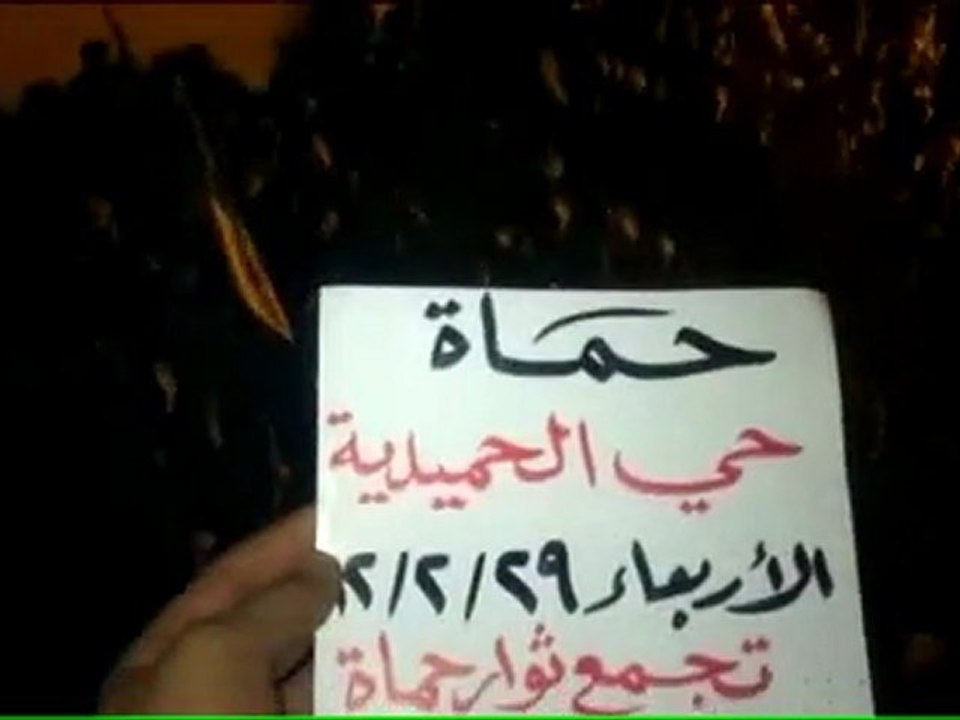 حماة
حي الحميدية
الأربعاء ٢٩/٢/١٢
تجمع ثوار حماة